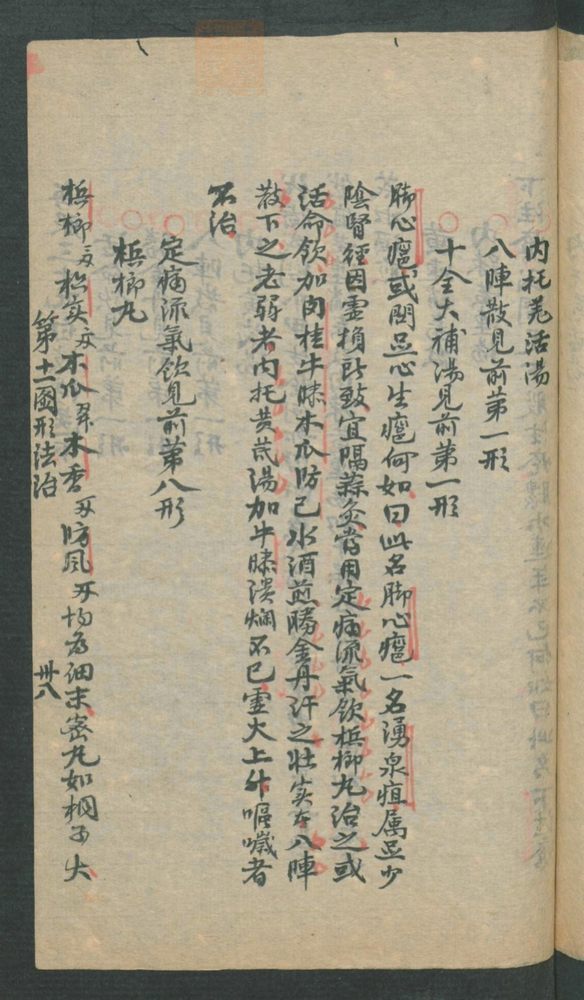 内托羌活湯
八陣散見前第一形
十全大補湯見前第一形
脚心癰或問足心生癰何如曰此名脚心癰一名湧泉疽属足少
陰腎經因虚損所致宜隔蒜灸當用定痛流氣飲梹榔丸治之或
活命飲加肉桂牛膝木瓜防己水酒煎勝金丹汗之壮实者八陣
散下之老弱者内托黄芪湯加牛膝潰烂不已虚火上升嘔噦者
不治
定痛流氣飲見前第八形
梹榔丸
梹榔 枳实 木瓜 木香 防風 均為细末密丸如桐子大
第十一國形法治 卅八